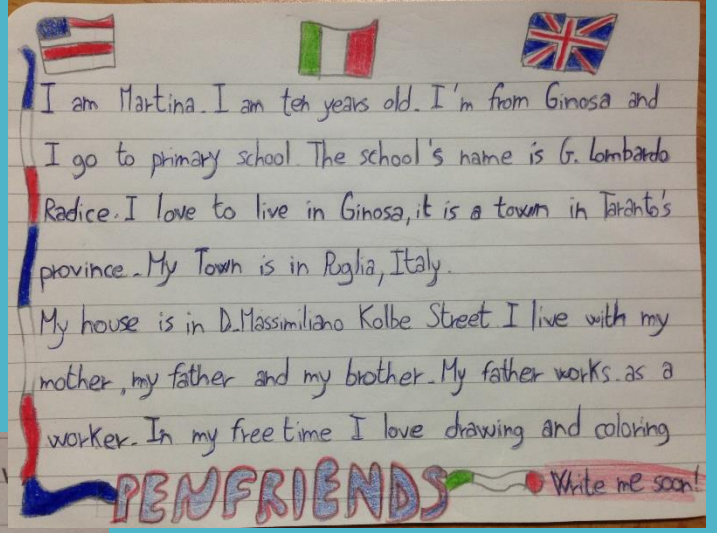 I am Martina. I am teh years old. I'm from Ginosa and
I go to primary school. The school's name is G. Lombardo
Radice. I love to live in Ginosa, it is a town in Taranto's
province. My Town is in Puglia, Italy.
My house is in D. Massimiliano Kolbe Street I live with my
mother, my father and my brother. My father works. as a
worker. In my free time I love drawing and coloring
PENFRIENDS Write me soon!